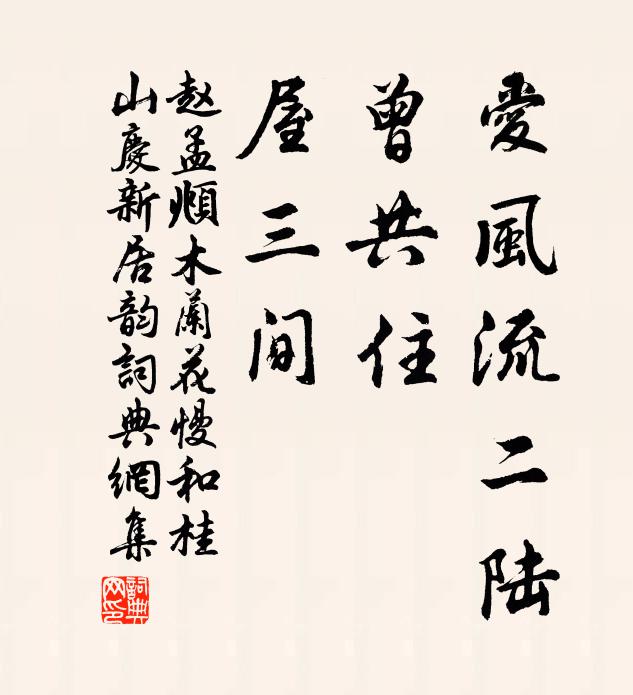 愛風流二陆
曾共住
屋三间
赵孟頫木蘭花慢和桂
山慶新居韵詞典網集
詞典網印